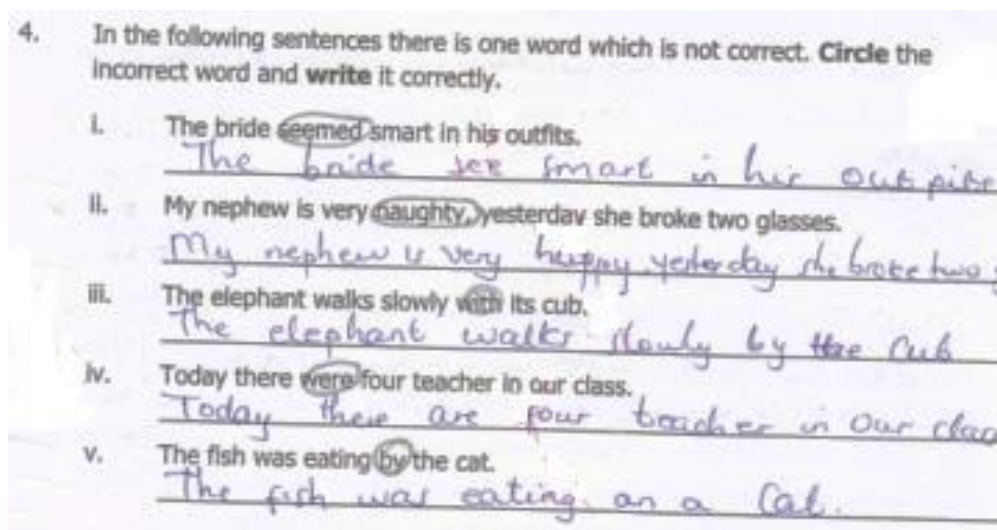 4. In the following sentences there is one word which is not correct. Circle the
incorrect word and write it correctly.
i. The bride seemed smart in his outfits.
The bride see smart in her
ii. My nephew is very naughty, yesterday she broke two glasses.
My nephew is very happy yesterday she broke two
iii. The elephant walks slowly with its cub.
The elephant walks slowly by the Cub
iv. Today there were four teacher in our class.
Today there are four teacher in our clas
v. The fish was eating by the cat.
The fish was eating on a Cat.